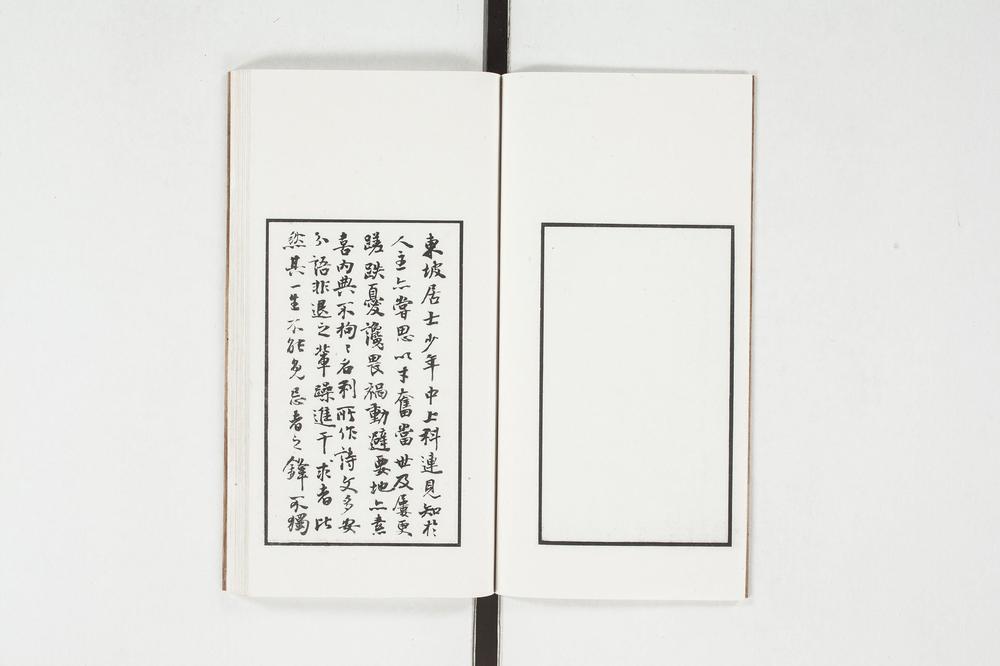 東坡居士少年中上科連見知於
人主亦嘗思以才奮當世及屢更
蹉跌憂讒畏禍動避要地亦素
喜内典不拘〻名利所作詩文多安
分語非退之輩躁進干求者比
然其一生不能免忌者之鋒不獨